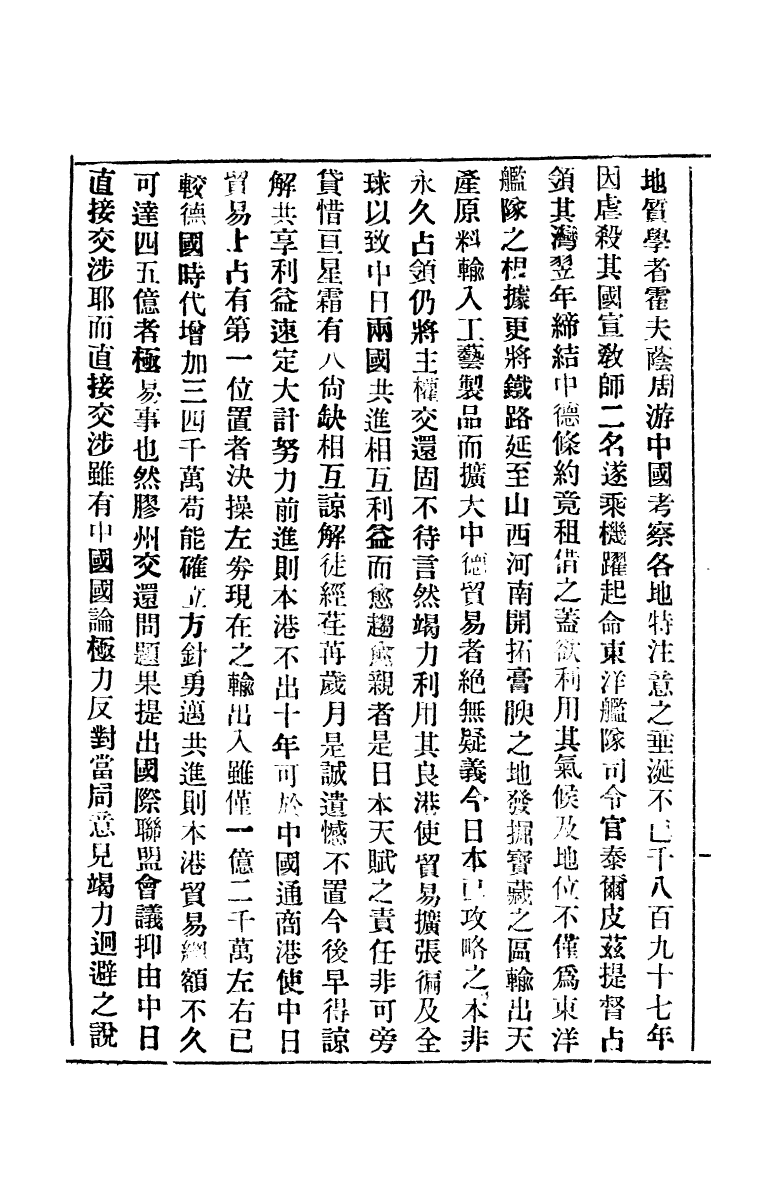 地質學者霍夫蔭周游中國考察各地特注意之垂涎不已千八百九十七年
因虐殺其國宣敎師二名遂乘機躍起命東洋艦隊司令官泰爾皮茲提督占
領其灣翌年締結中德條約竟租借之蓋欲利用其氣候及地位不僅爲東洋
艦隊之根據更將鐵路延至山西河南開拓膏腴之地發掘寶藏之區輸出天
產原料輸入工藝製品而擴大中德貿易者絕無疑義今日本已攻略之本非
永久占領仍將主權交還固不待言然竭力利用其良港使貿易擴張徧及全
球以致中日兩國共進相互利益而愈趨愈親者是日本天賦之責任非可旁
貸惜亘星霜有八尙缺相互諒解徒經荏苒歲月是誠遺憾不置今後早得諒
解共享利益速定大計努力前進則本港不出十年可於中國通商港使中日
貿易上占有第一位置者決操左券現在之輸出入雖僅一億二千萬左右已
較德國時代增加三四千萬苟能確立方針勇邁共進則本港貿易總額不久
可達四五億者極易事也然膠州交還問題果提出國際聯盟會議抑由中日
直接交涉耶而直接交涉雖有中國國論極力反對當局意見竭力迴避之說